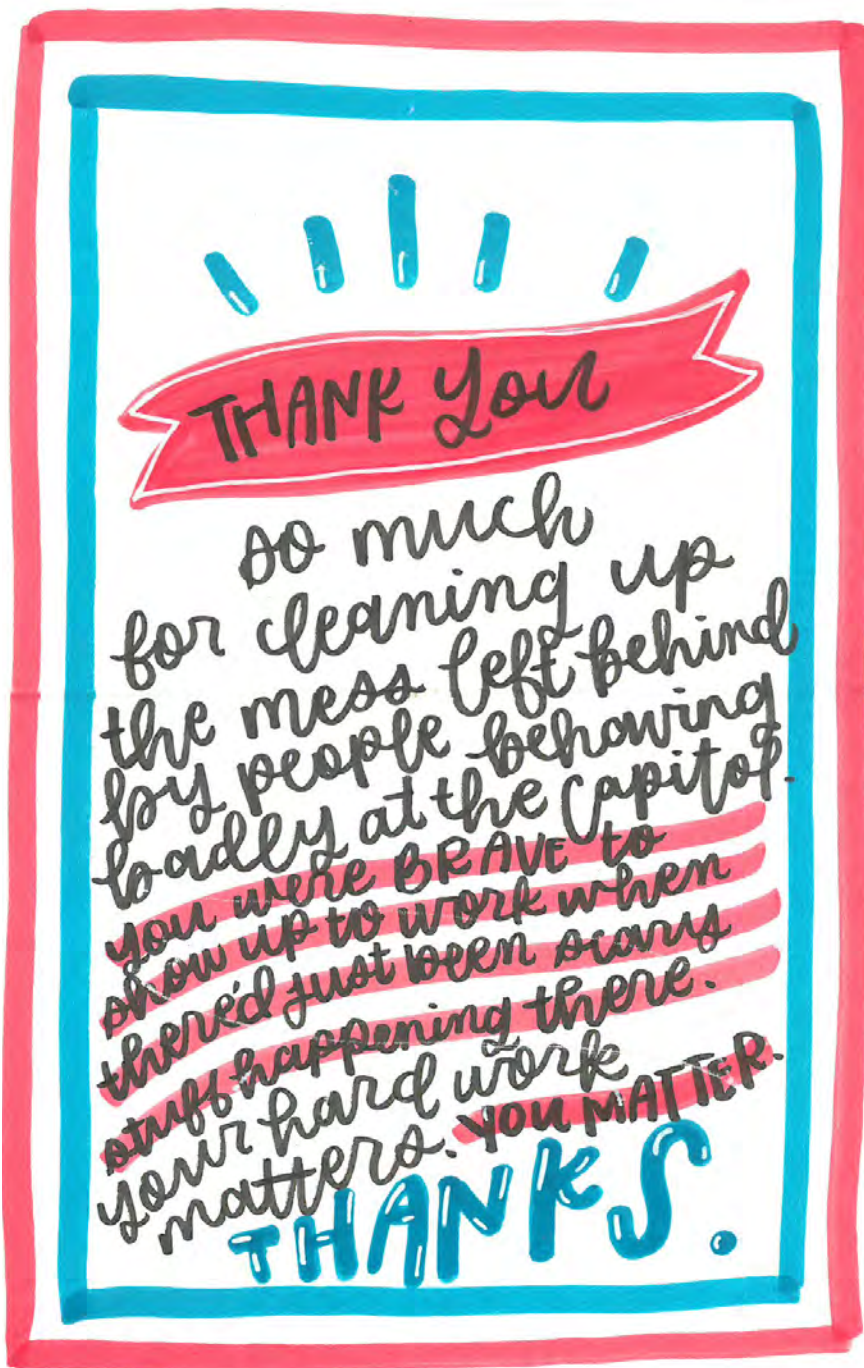 THANK you
so much
for cleaning up
the mess left behind
by people behaving
badly at the Capitol.
you were BRAVE to
show up to work when
there'd just been scary
stuff happening there.
your hard work
matters. YOU MATTER.
THANKS.